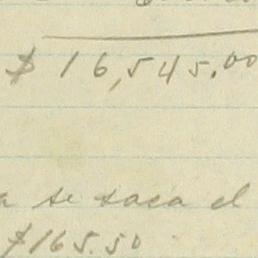 $16,545.00
a se saca el
$165.50